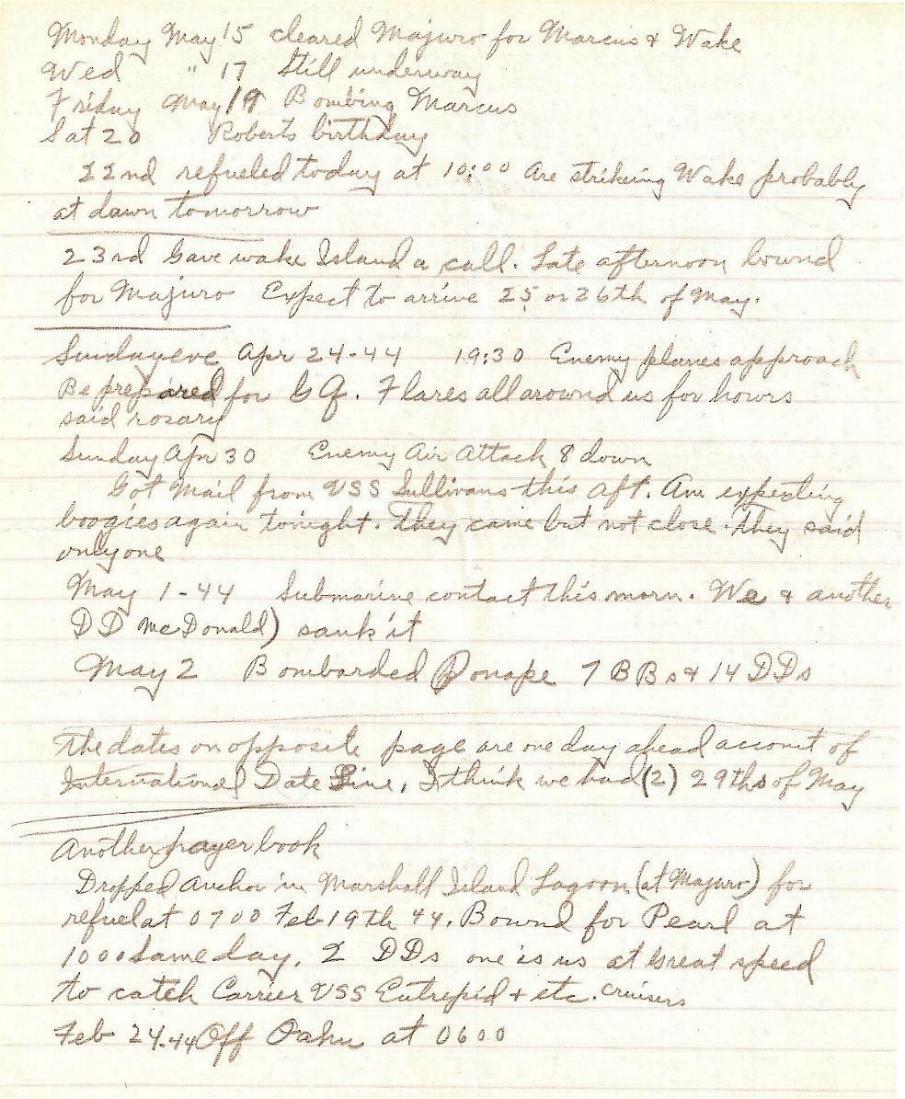 Monday May 15 cleared Majuro for Marcus & Wake
Wed " 17 Still underway
Friday May 19 Bombing Marcus
Sat 20 Roberts birthday
22nd refueled today at 10:00 Are strikeing Wake probably
at dawn tomorrow
23rd Gave wake Island a call. Late afternoon bound
for Majuro Expect to arrive 25 or 26th of May.
Sunday eve Apr 24-44 19:30 Enemy planes approach
Be prepared for GQ. Flares all around us for hours
said rosary
Sunday Apr 30 Enemy Air Attack 8 down
Got Mail from USS Sullivans this aft. Are expecting
boogies again tonight. They came but not close. They said
only one
May 1-44 Submarine contact this morn. We & another
DD McDonald) sank it
May 2 Bombarded Ponape 7 BBs & 14 DDs
The dates on opposite page are one day ahead account of
International Date Line, I think we had (2) 29ths of May
Another prayer book
Dropped Anchor in Marshall Island Lagoon (at Majuro) for
refuel at 0700 Feb 19th 44. Bound for Pearl at
1000 Same day. 2 DDs one is us at Great speed
to catch Carrier USS Entrepid & etc. cruisers
Feb 24-44 Off Oahu at 0600